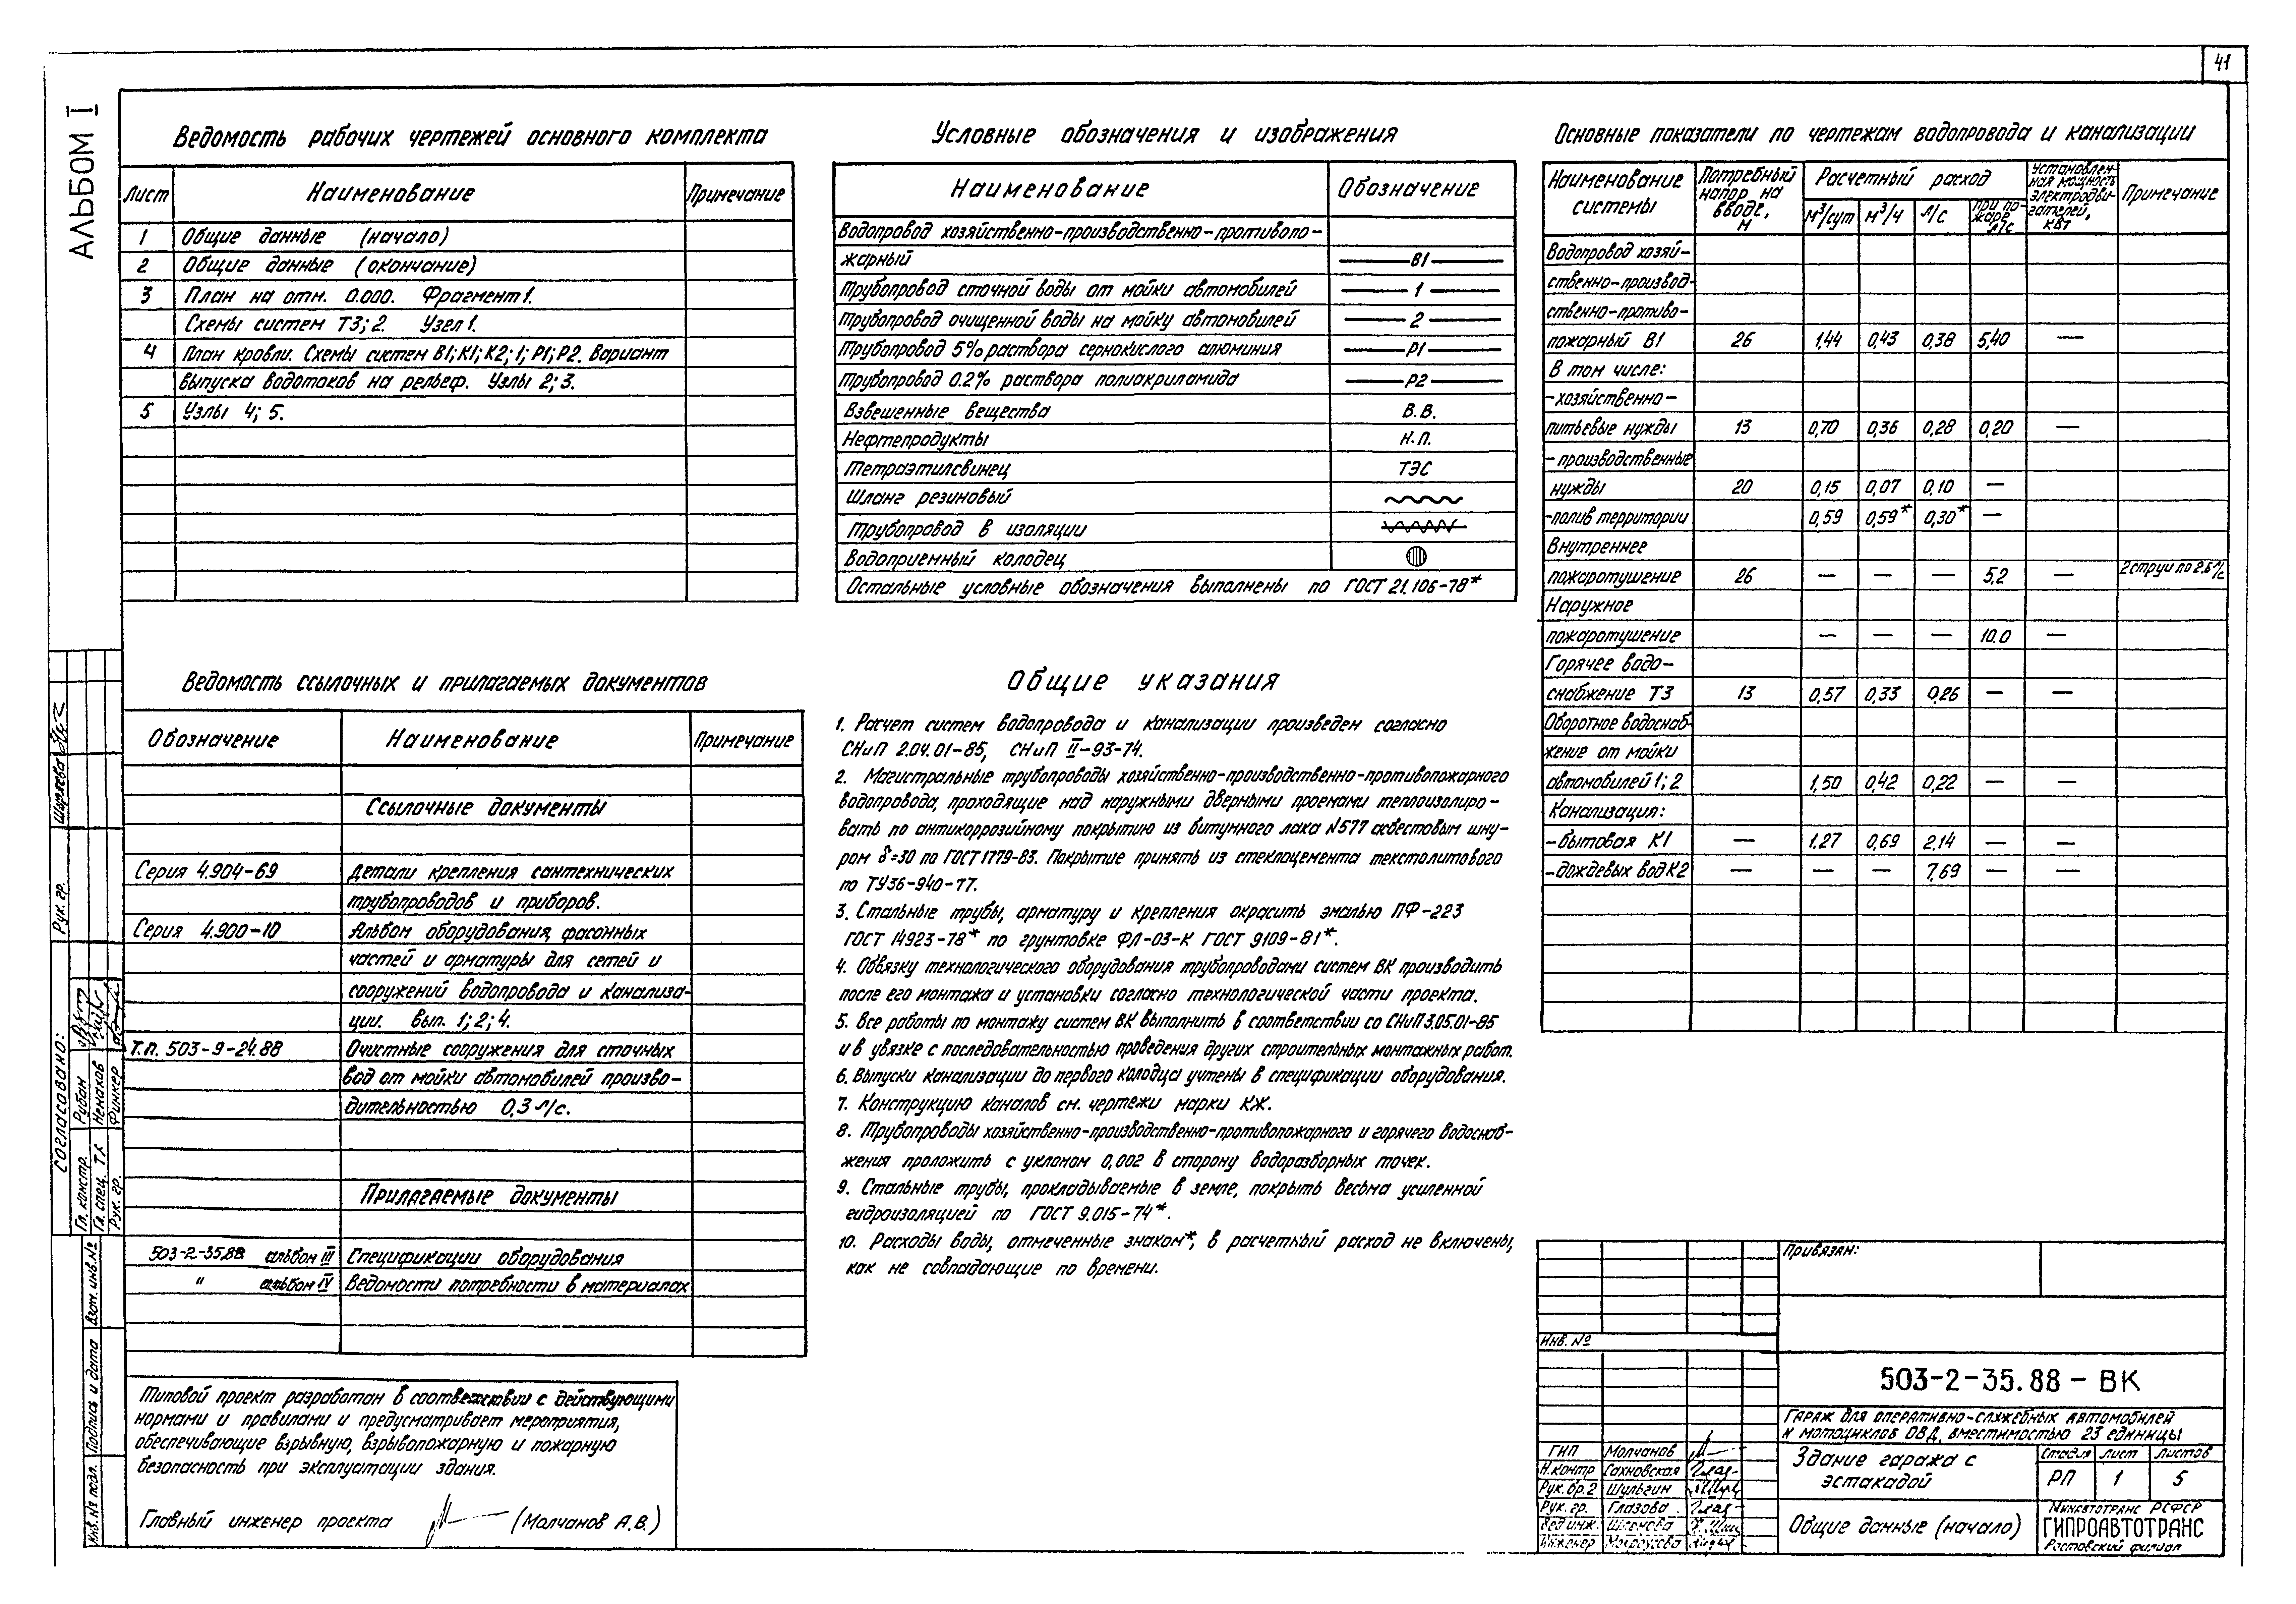 41
АЛЬБОМ I
Ведомость рабочих чертежей основного комплекта
Лист Наименование Примечание
1 Общие данные (начало)
2 Общие данные (окончание)
3 План на отм. 0.000. Фрагмент 1.
Схемы систем Т3; 2. Узел 1.
4 План кровли. Схемы систем В1; К1; К2; 1; Р1; Р2. Вариант
выпуска водотоков на рельеф. Узлы 2; 3.
5 Узлы 4; 5.
Условные обозначения и изображения
Наименование Обозначение
Водопровод хозяйственно-производственно-противопо-
жарный В1
Трубопровод сточной воды от мойки автомобилей 1
Трубопровод очищенной воды на мойку автомобилей 2
Трубопровод 5% раствора сернокислого алюминия Р1
Трубопровод 0.2% раствора полиакриламида Р2
Взвешенные вещества В.В.
Нефтепродукты Н.П.
Тетраэтилсвинец ТЭС
Шланг резиновый
Трубопровод в изоляции
Водоприемный колодец
Остальные условные обозначения выполнены по ГОСТ 21.106-78*
Основные показатели по чертежам водопровода и канализации
Наименование системы Потребный напор на вводе, м Расчетный расход м³/сут м³/ч л/с при по-жаре л/с Установлен-ная мощность электродви-гателей, кВт Примечание
Водопровод хозяй-
ственно-производ-
ственно-противо-
пожарный В1 26 1,44 0,43 0,38 5,40 —
В том числе:
-хозяйственно-
питьевые нужды 13 0,70 0,36 0,28 0,20 —
-производственные
нужды 20 0,15 0,07 0,10 —
-полив территории 0,59 0,59* 0,30* —
Внутреннее
пожаротушение 26 — — — 5,2 — 2 струи по 2,6 л/с
Наружное
пожаротушение — — — 10.0 —
Горячее водо-
снабжение Т3 13 0,57 0,33 0,26 — —
Оборотное водоснаб-
жение от мойки
автомобилей 1; 2 1,50 0,42 0,22 — —
Канализация:
-бытовая К1 — 1.27 0,69 2,14 — —
-дождевых вод К2 — — — 7,69 — —
Ведомость ссылочных и прилагаемых документов
Обозначение Наименование Примечание
Ссылочные документы
Серия 4.904-69 Детали крепления сантехнических
трубопроводов и приборов.
Серия 4.900-10 Альбом оборудования, фасонных
частей и арматуры для сетей и
сооружений водопровода и канализа-
ции. Вып. 1; 2; 4.
Т.п. 503-9-24.88 Очистные сооружения для сточных
вод от мойки автомобилей произво-
дительностью 0,3 л/с.
Прилагаемые документы
503-2-35.88 альбом III Спецификации оборудования
" альбом IV Ведомости потребности в материалах
Общие указания
1. Расчет систем водопровода и канализации произведен согласно
СНиП 2.04.01-85, СНиП II-93-74.
2. Магистральные трубопроводы хозяйственно-производственно-противопожарного
водопровода, проходящие над наружными дверными проемами теплоизолиро-
вать по антикоррозийному покрытию из битумного лака N577 асбестовым шну-
ром δ=30 по ГОСТ 1779-83. Покрытие принять из стеклоцемента текстолитового
по ТУ36-940-77.
3. Стальные трубы, арматуру и крепления окрасить эмалью ПФ-223
ГОСТ 14923-78* по грунтовке ФЛ-03-К ГОСТ 9109-81*.
4. Обвязку технологического оборудования трубопроводами систем ВК производить
после его монтажа и установки согласно технологической части проекта.
5. Все работы по монтажу систем ВК выполнить в соответствии со СНиП 3.05.01-85
и в увязке с последовательностью проведения других строительных монтажных работ.
6. Выпуски канализации до первого колодца учтены в спецификации оборудования.
7. Конструкцию каналов см. чертежи марки КЖ.
8. Трубопроводы хозяйственно-производственно-противопожарного и горячего водоснаб-
жения проложить с уклоном 0,002 в сторону водоразборных точек.
9. Стальные трубы, прокладываемые в земле, покрыть весьма усиленной
гидроизоляцией по ГОСТ 9.015-74*.
10. Расходы воды, отмеченные знаком*, в расчетный расход не включены,
как не совпадающие по времени.
Типовой проект разработан в соответствии с действующими
нормами и правилами и предусматривает мероприятия,
обеспечивающие взрывную, взрывопожарную и пожарную
безопасность при эксплуатации здания.
Главный инженер проекта (Молчанов А.В.)
Согласовано:
Рук. гр. Ширяева
Гл. констр. Рубан
Гл. спец. Т.х. Ненахов
Рук. гр. Финкер
Взам. инв. №
Подпись и дата
Инв. № подл.
Привязан:
Инв. №
503-2-35.88 - ВК
Гараж для оперативно-служебных автомобилей
и мотоциклов ОВД, вместимостью 23 единицы
ГИП Молчанов
Н.контр Сахновская
Рук. бр. 2 Шульгин
Рук. гр. Глазова
Вед инж.
Инженер
Здание гаража с
эстакадой
Стадия Лист Листов
РП 1 5
Общие данные (начало)
Минавтотранс РСФСР
ГИПРОАВТОТРАНС
Ростовский филиал